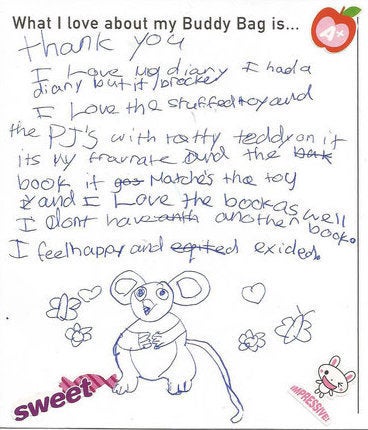 What I love about my Buddy Bag is...
A+
thank you
I Love my diary I had a
diary but it brocke
I Love the stuffed toy and
the PJ's with tatty teddy on it
its my fravrate and the
book it Matches the toy
and I Love the book as well
I dont have another book.
I feel happy and exided.
sweet
IMPRESSIVE!